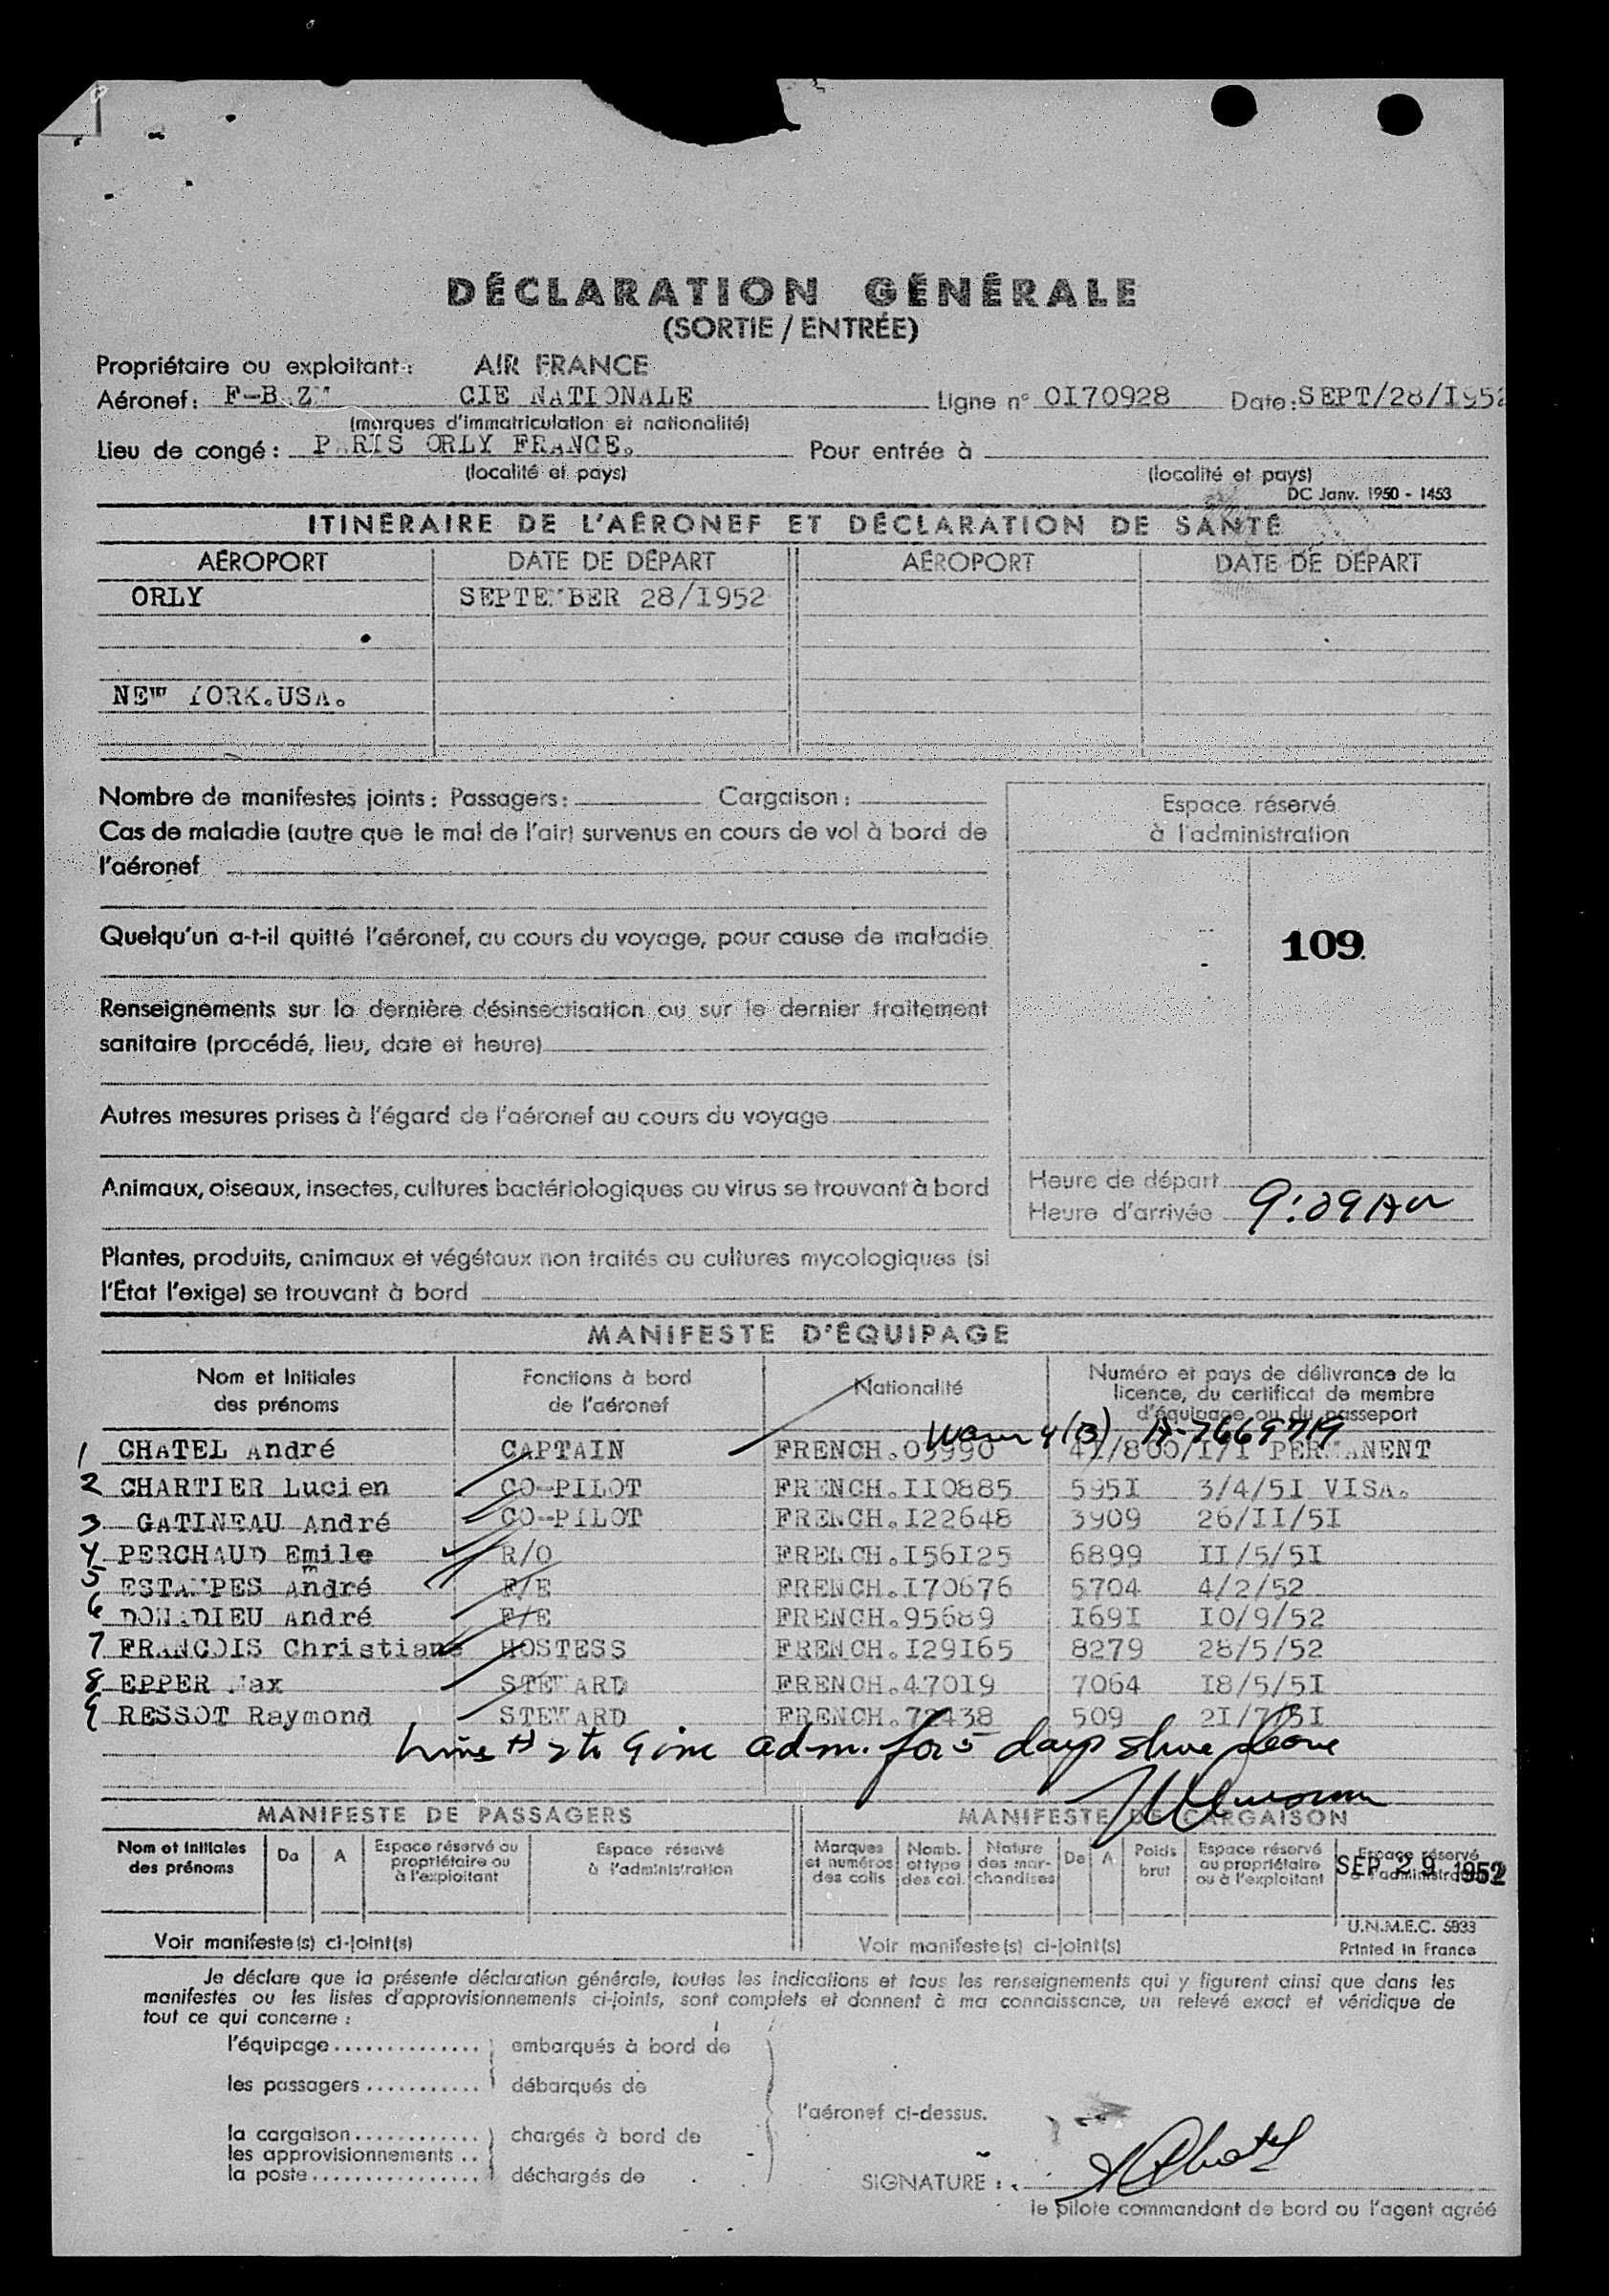 DÉCLARATION GÉNÉRALE
(SORTIE / ENTRÉE)
Propriétaire ou exploitant : AIR FRANCE
Aéronef : CIE NATIONALE Ligne n° OI70928 Date : SEPT/28/I952
(marques d'immatriculation et nationalité)
Lieu de congé : PARIS ORLY FRANCE. Pour entrée à
(localité et pays) (localité et pays)
DC Janv. 1950 - 1453
ITINÉRAIRE DE L'AÉRONEF ET DÉCLARATION DE SANTÉ
AÉROPORT DATE DE DÉPART AÉROPORT DATE DE DÉPART
ORLY SEPTEMBER 28/I952
NEW YORK.USA.
Nombre de manifestes joints : Passagers : Cargaison :
Cas de maladie (autre que le mal de l'air) survenus en cours de vol à bord de
l'aéronef
Espace réservé
à l'administration
Quelqu'un a-t-il quitté l'aéronef, au cours du voyage, pour cause de maladie
109
Renseignements sur la dernière désinsectisation ou sur le dernier traitement
sanitaire (procédé, lieu, date et heure)
Autres mesures prises à l'égard de l'aéronef au cours du voyage
Animaux, oiseaux, insectes, cultures bactériologiques ou virus se trouvant à bord
Heure de départ
Heure d'arrivée 9:09 AM
Plantes, produits, animaux et végétaux non traités ou cultures mycologiques (si
l'État l'exige) se trouvant à bord
MANIFESTE D'ÉQUIPAGE
Nom et Initiales des prénoms Fonctions à bord de l'aéronef Nationalité Numéro et pays de délivrance de la licence, du certificat de membre d'équipage ou du passeport
A-7669719
1 CHATEL André CAPTAIN FRENCH. 4I/800/I/I PERMANENT
2 CHARTIER Lucien CO-PILOT FRENCH.II0885 595I 3/4/5I VISA.
3 GATINEAU André CO-PILOT FRENCH.I22648 3909 26/II/5I
4 PERCHAUD Emile R/O FRENCH.I56I25 6899 II/5/5I
5 ESTAMPES André F/E FRENCH.I70676 5704 4/2/52
6 DONADIEU André F/E FRENCH.95689 I69I I0/9/52
7 FRANCOIS Christiane HOSTESS FRENCH.I29I65 8279 28/5/52
8 EPPER Max STEWARD FRENCH.470I9 7064 I8/5/5I
9 RESSOT Raymond STEWARD FRENCH.72438 509 2I/7/5I
adm. for 5 days shore leave
MANIFESTE DE PASSAGERS MANIFESTE DE CARGAISON
Nom et Initiales des prénoms De A Espace réservé au propriétaire ou à l'exploitant Espace réservé à l'administration Marques et numéros des colis Nomb. et type des col. Nature des marchandises De A Poids brut Espace réservé au propriétaire ou à l'exploitant Espace réservé à l'administration
SEP 29 1952
U.N.M.E.C. 5933
Voir manifeste(s) ci-joint(s) Voir manifeste(s) ci-joint(s) Printed in France
Je déclare que la présente déclaration générale, toutes les indications et tous les renseignements qui y figurent ainsi que dans les
manifestes ou les listes d'approvisionnements ci-joints, sont complets et donnent à ma connaissance, un relevé exact et véridique de
tout ce qui concerne :
l'équipage embarqués à bord de
les passagers débarqués de
l'aéronef ci-dessus.
la cargaison chargés à bord de
les approvisionnements
la poste déchargés de
SIGNATURE : AChatel
le pilote commandant de bord ou l'agent agréé